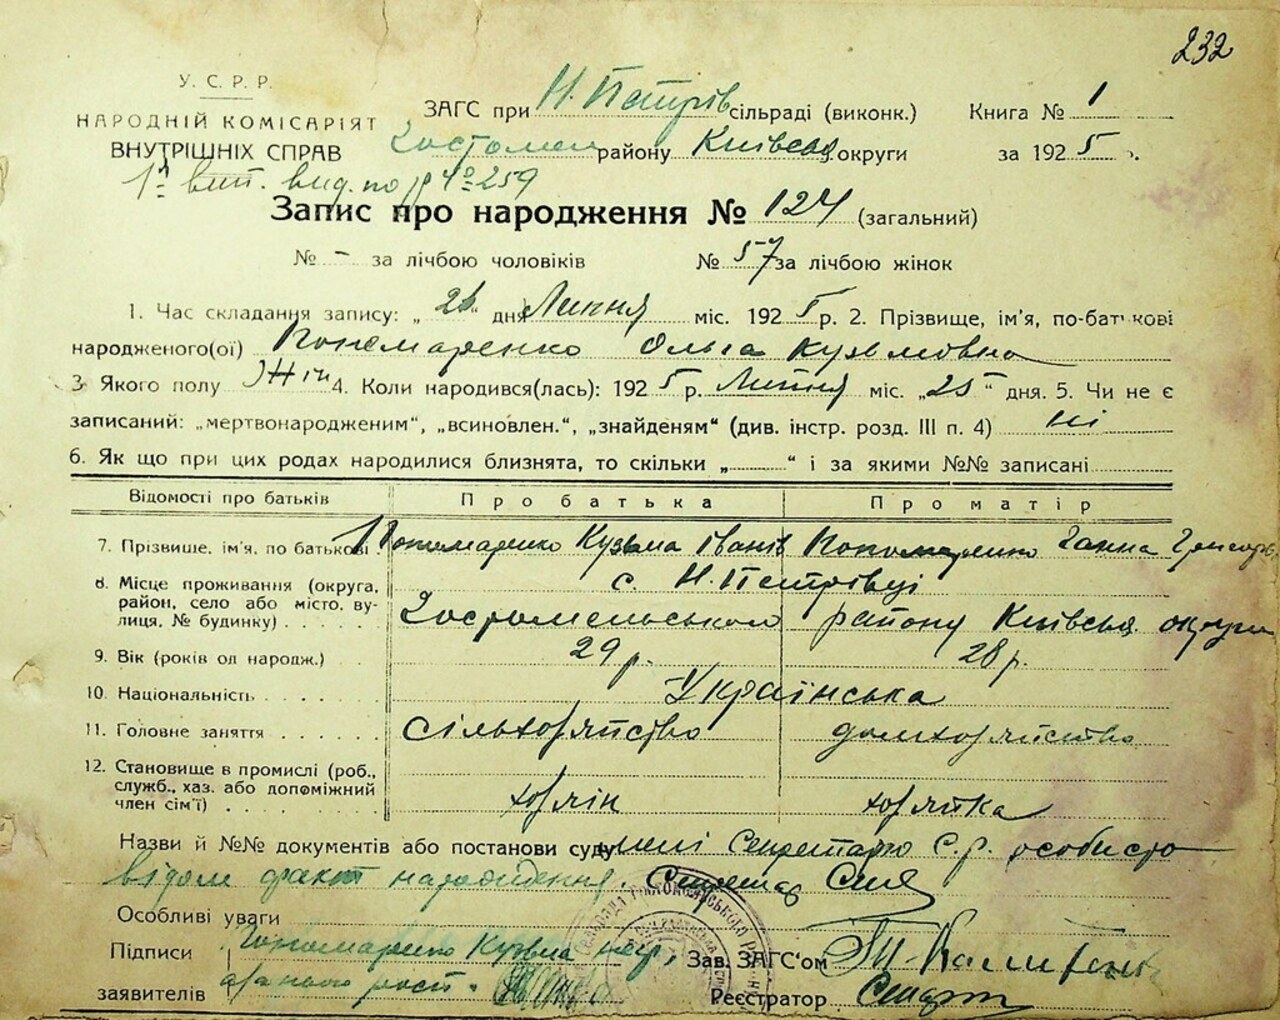 232
У. С. Р. Р.
НАРОДНІЙ КОМІСАРІЯТ
ВНУТРІШНІХ СПРАВ
ЗАГС при Н. Петрів сільраді (виконк.) Книга № 1
Гостомел району Київськ округи за 192 5 р.
1й вип. вид. по № 259
Запис про народження № 124 (загальний)
№ - за лічбою чоловіків № 57 за лічбою жінок
1. Час складання запису: „ 26 " дня Липня міс. 192 5 р. 2. Прізвище, ім'я, по-батькові
народженого(ої) Пономаренко Ольга Кузьмовна
3 Якого полу Жін 4. Коли народився(лась): 192 5 р. Липня міс. „25" дня. 5. Чи не є
записаний: „мертвонародженим", „всиновлен.", „знайденям" (див. інстр. розд. III п. 4) ні
6. Як що при цих родах народилися близнята, то скільки „ " і за якими №№ записані
Відомості про батьків Про батька Про матір
7. Прізвище, ім'я, по батькові Пономаренко Кузьма Іванів Пономаренко Ганна Григорів
8. Місце проживання (округа, с. Н. Петрівці
район, село або місто, ву-
лиця, № будинку) Гостомельського району Київськ округи
9. Вік (років од народж.) 29 р. 28 р.
10. Національність Українська
11. Головне заняття сільхозяйство домхозяйство
12. Становище в промислі (роб.,
служб., хаз. або допоміжний
член сім'ї) хозяїн хозяйка
Назви й №№ документів або постанови суду мені Секретарю С.р. особисто
відом факт народження. Секретар
Особливі уваги
Підписи Пономаренко Кузьма
заявителів
Зав. ЗАГС'ом
Реєстратор